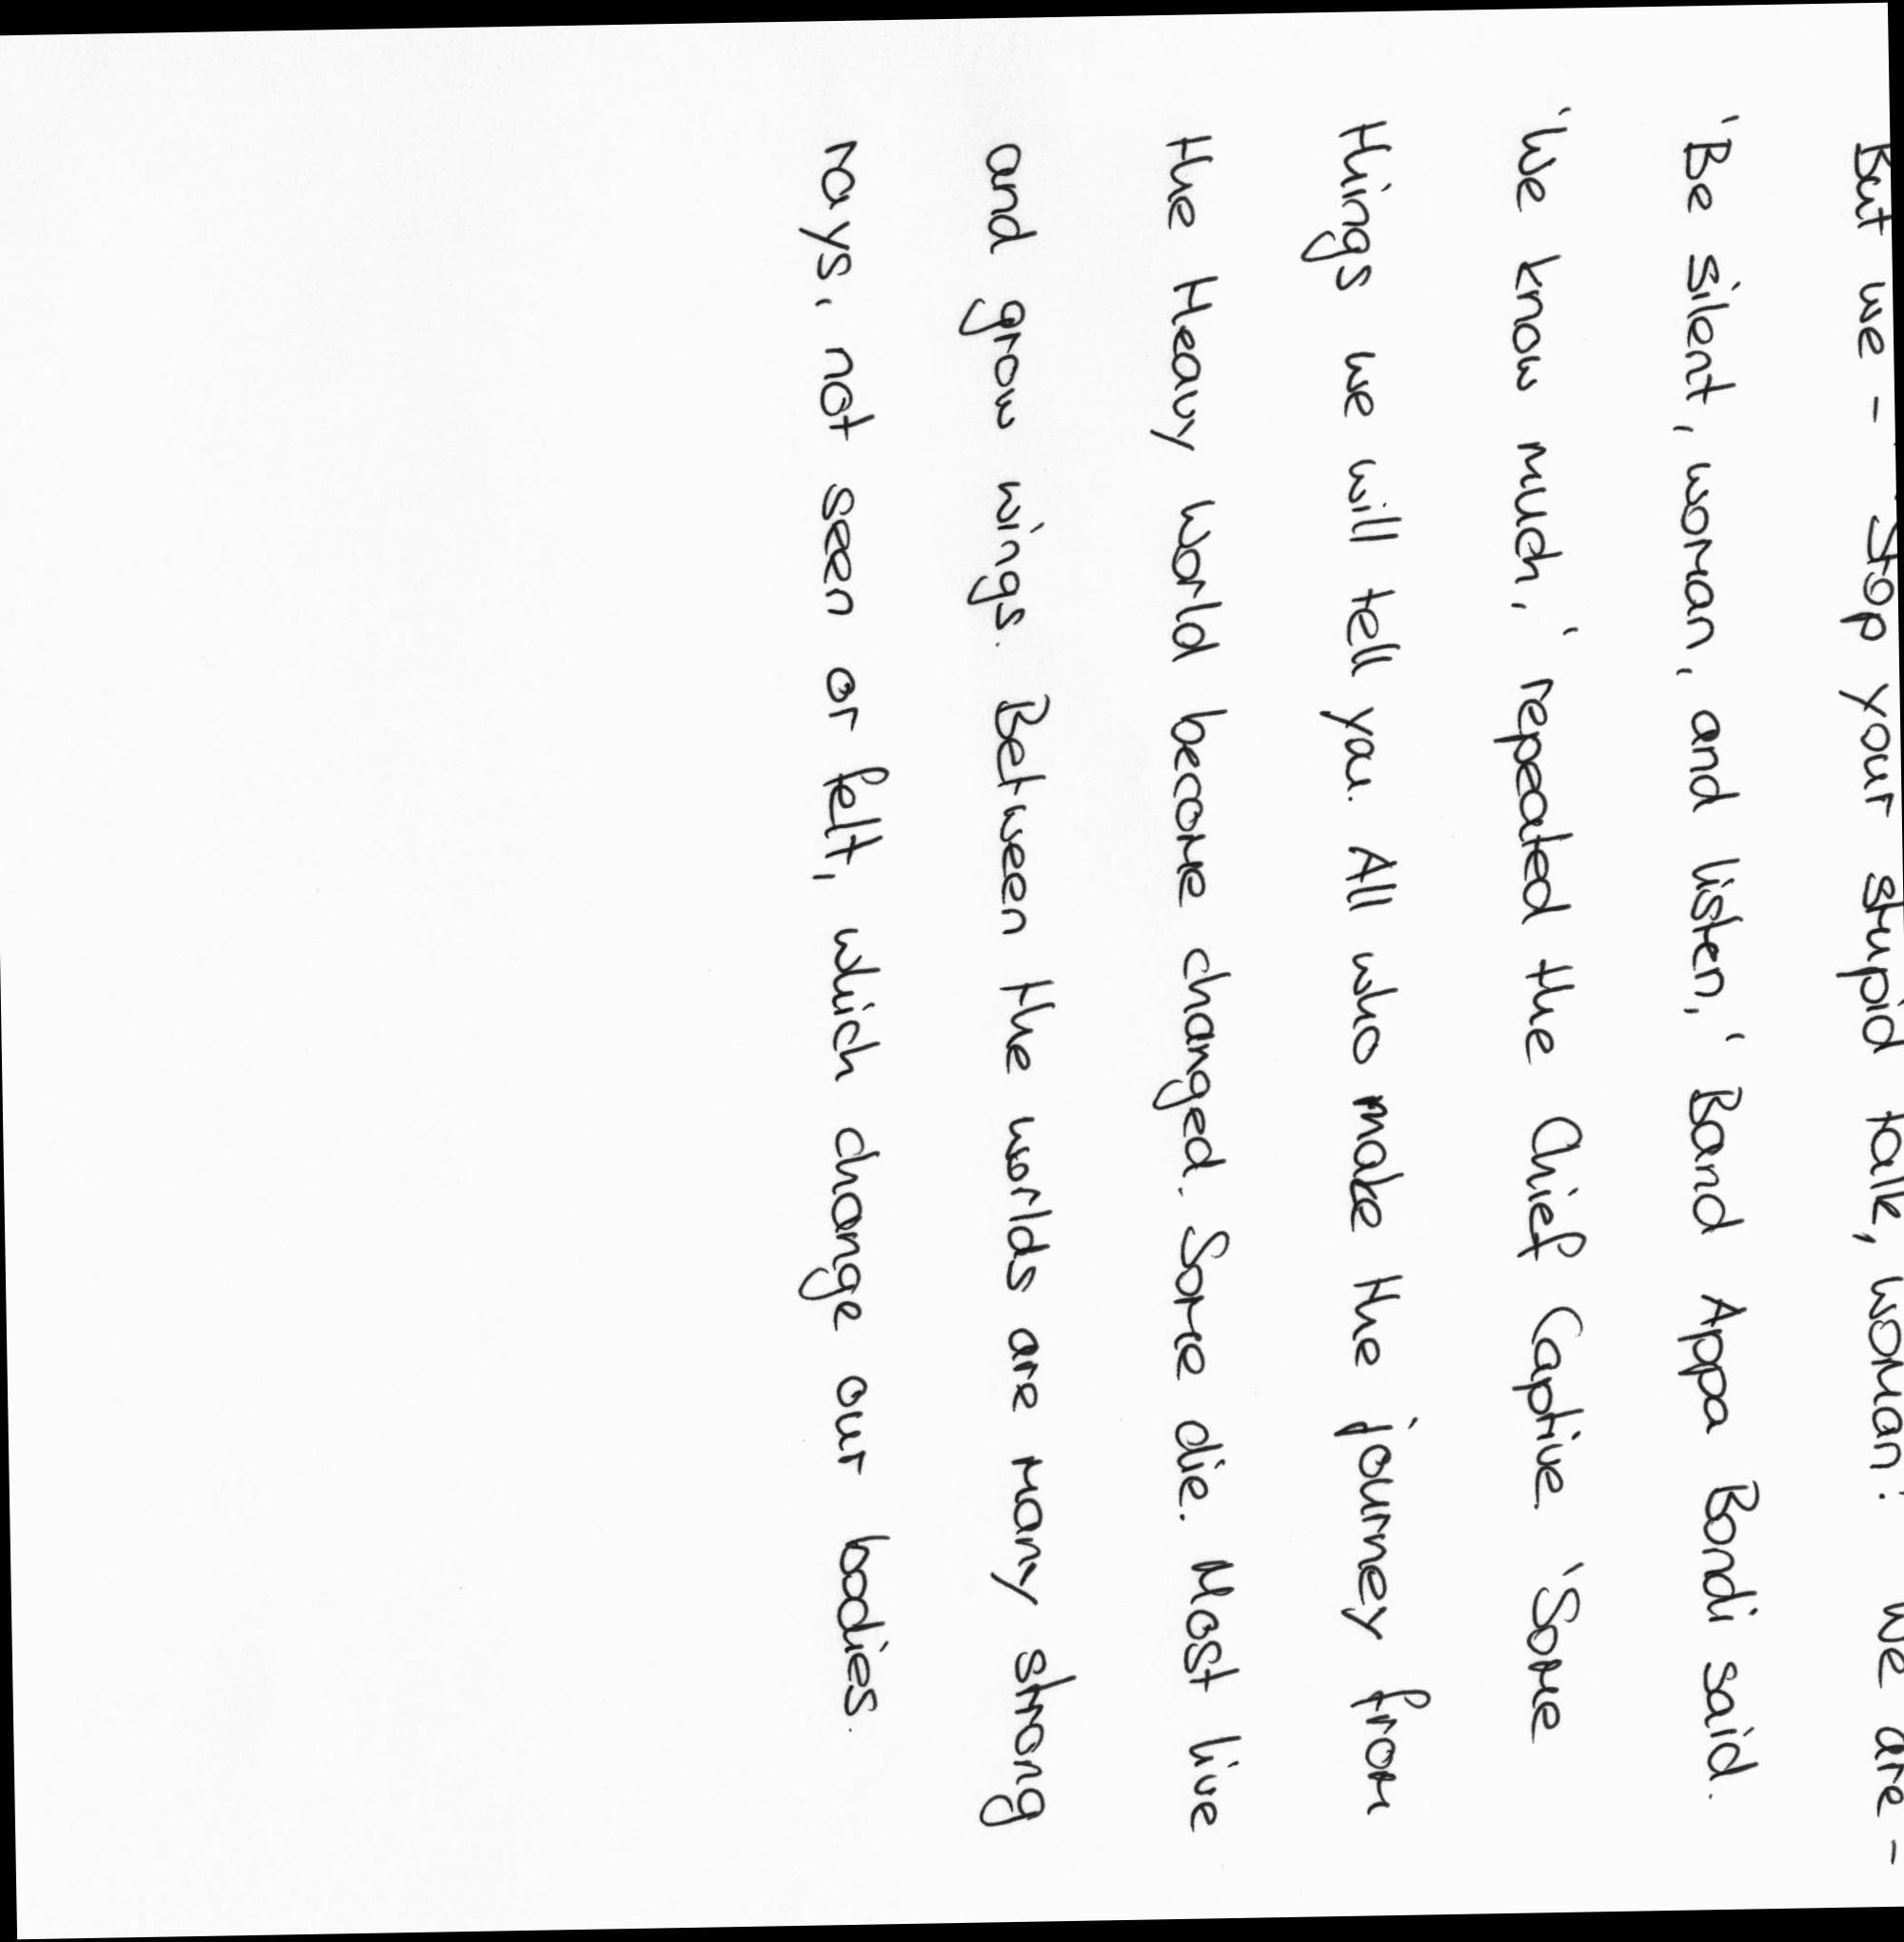 But we - ' Stop your stupid talk, woman.' ' We are -
'Be silent, woman, and listen,' Band Appa Bondi said.
'We know much,' repeated the Chief Captive. 'Some
things we will tell you. All who make the journey from
the Heavy World become changed. Some die. Most live
and grow wings. Between the worlds are many strong
rays, not seen or felt, which change our bodies.